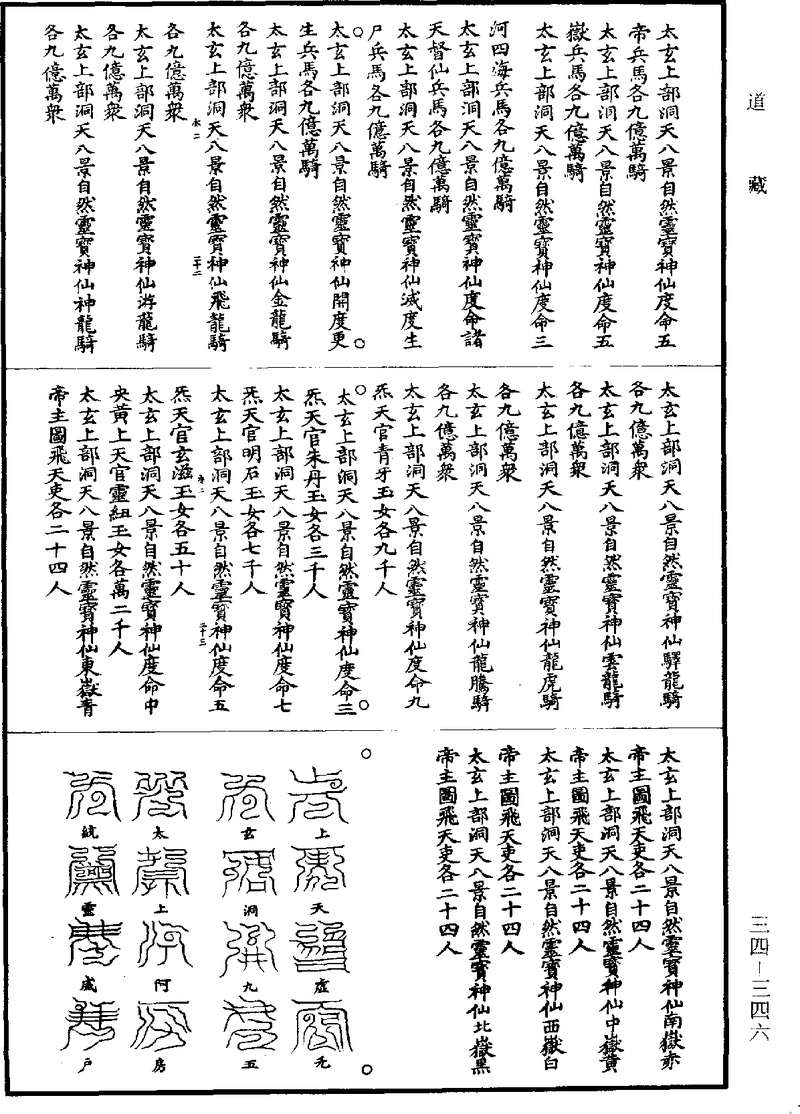 道藏
太玄上部洞天八景自然靈寶神仙度命五
帝兵馬各九億萬騎
太玄上部洞天八景自然靈寶神仙度命五
嶽兵馬各九億萬騎
太玄上部洞天八景自然靈寶神仙度命三
河四海兵馬各九億萬騎
太玄上部洞天八景自然靈寶神仙度命諸
天督仙兵馬各九億萬騎
太玄上部洞天八景自然靈寶神仙滅度生
尸兵馬各九億萬騎
太玄上部洞天八景自然靈寶神仙開度更
生兵馬各九億萬騎
太玄上部洞天八景自然靈寶神仙金龍騎
各九億萬衆
太玄上部洞天八景自然靈寶神仙飛龍騎
各九億萬衆
太玄上部洞天八景自然靈寶神仙游龍騎
各九億萬衆
太玄上部洞天八景自然靈寶神仙神龍騎
各九億萬衆
太玄上部洞天八景自然靈寶神仙驛龍騎
各九億萬衆
太玄上部洞天八景自然靈寶神仙雲龍騎
各九億萬衆
太玄上部洞天八景自然靈寶神仙龍虎騎
各九億萬衆
太玄上部洞天八景自然靈寶神仙龍騰騎
各九億萬衆
太玄上部洞天八景自然靈寶神仙度命九
炁天官青牙玉女各九千人
太玄上部洞天八景自然靈寶神仙度命三
炁天官朱丹玉女各三千人
太玄上部洞天八景自然靈寶神仙度命七
炁天官明石玉女各七千人
太玄上部洞天八景自然靈寶神仙度命五
炁天官玄滋玉女各五十人
太玄上部洞天八景自然靈寶神仙度命中
央黃上天官靈紐玉女各萬二千人
太玄上部洞天八景自然靈寶神仙東嶽青
帝主圖飛天吏各二十四人
太玄上部洞天八景自然靈寶神仙南嶽赤
帝主圖飛天吏各二十四人
太玄上部洞天八景自然靈寶神仙中嶽黃
帝主圖飛天吏各二十四人
太玄上部洞天八景自然靈寶神仙西嶽白
帝主圖飛天吏各二十四人
太玄上部洞天八景自然靈寶神仙北嶽黑
帝主圖飛天吏各二十四人
上天虛元
玄洞九五
太上阿房
統靈威戶
三四—三四六